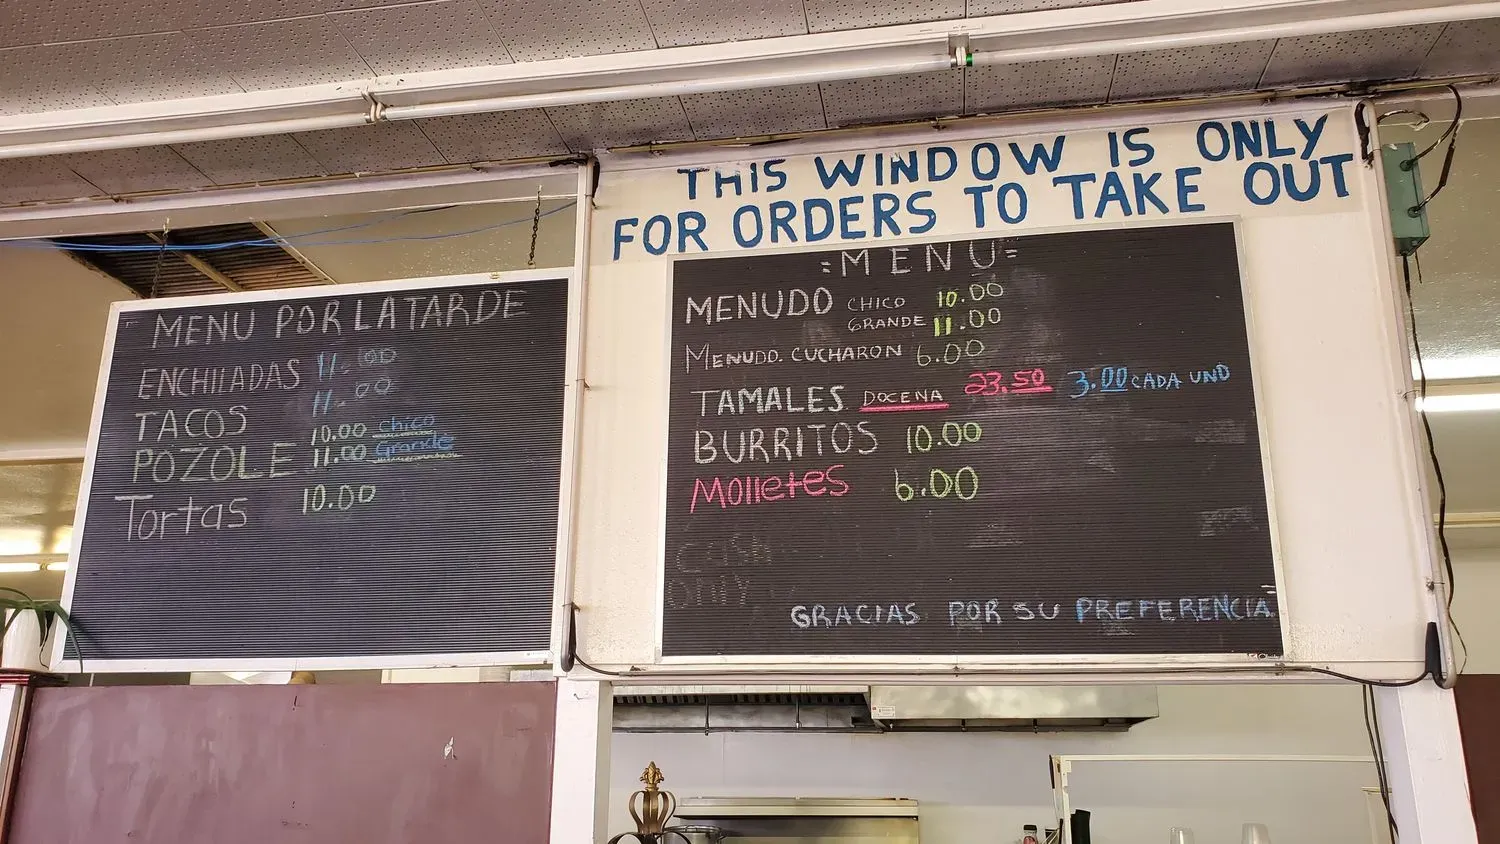 THIS WINDOW IS ONLY
FOR ORDERS TO TAKE OUT
MENU POR LA TARDE
ENCHILADAS 11.00
TACOS 11.00
POZOLE 10.00 chico
11.00 Grande
Tortas 10.00
=MENU=
MENUDO CHICO 10.00
GRANDE 11.00
MENUDO. CUCHARON 6.00
TAMALES DOCENA 23.50 3.00 CADA UNO
BURRITOS 10.00
Molletes 6.00
Cash
Only
GRACIAS POR SU PREFERENCIA